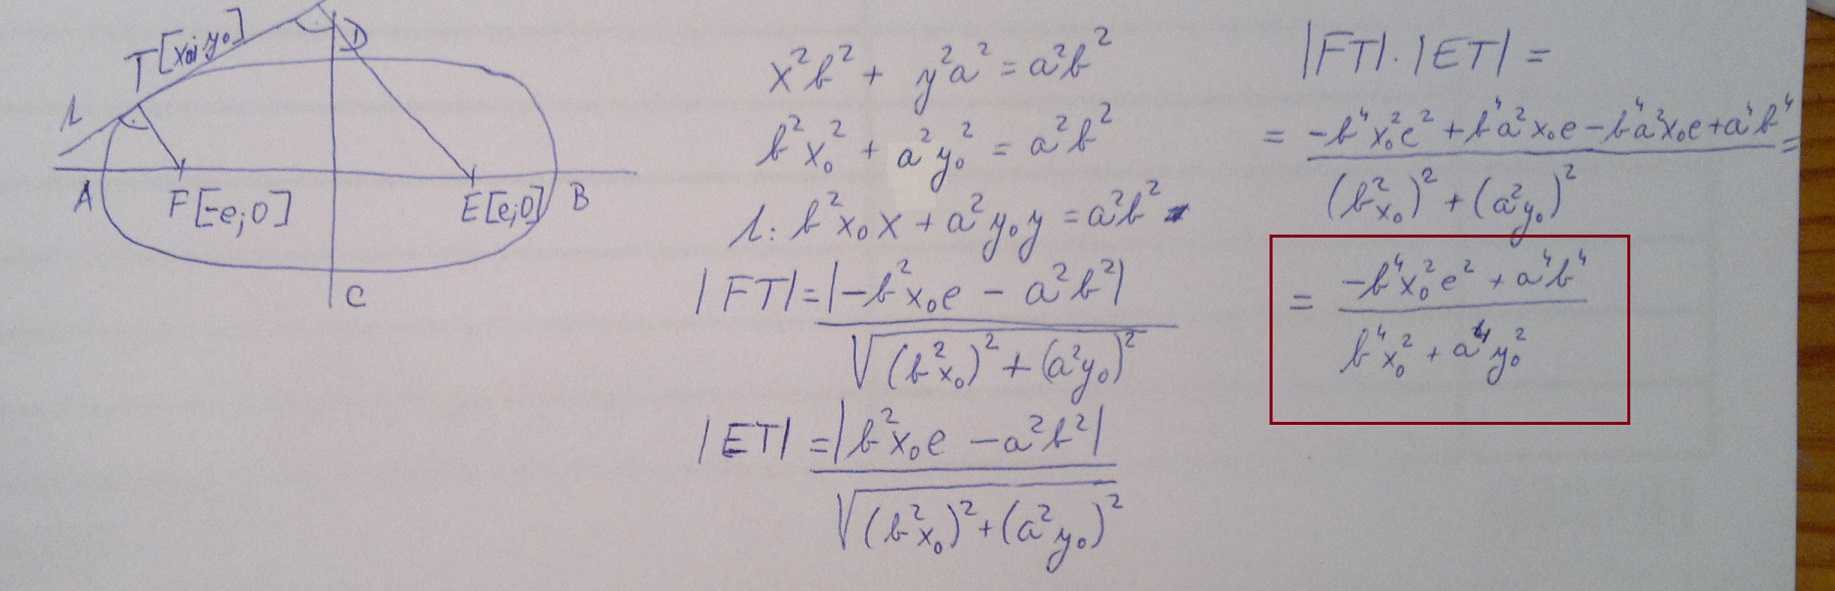 T[x₀;y₀]
D
t
A
F[-e;0]
E[e;0]
B
C
x²b² + y²a² = a²b²
b²x₀² + a²y₀² = a²b²
t: b²x₀x + a²y₀y = a²b²
|FT| = |-b²x₀e - a²b²|
√(b²x₀)² + (a²y₀)²
|ET| = |b²x₀e - a²b²|
√(b²x₀)² + (a²y₀)²
|FT|·|ET| =
= -b⁴x₀²e² + b⁴a²x₀e - b⁴a²x₀e + a⁴b⁴ =
(b²x₀)² + (a²y₀)²
= -b⁴x₀²e² + a⁴b⁴
b⁴x₀² + a⁴y₀²